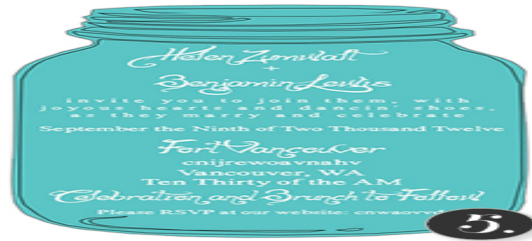 Helen Zumwalt
+
Benjamin Levihs
invite you to join them, with
joyous hearts and dancin' shoes,
as they marry and celebrate
September the Ninth of Two Thousand Twelve
Fort Vancouver
cnijrewoavnahv
Vancouver, WA
Ten Thirty of the AM
Celebration and Brunch to Follow
Please RSVP at our website:
5.